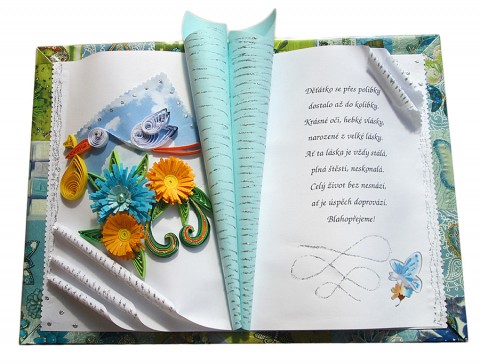 Děťátko se přes polibky
dostalo až do kolíbky.
Krásné oči, hebké vlásky,
narozené z velké lásky.
Ať ta láska je vždy stálá,
plná štěstí, neskonalá.
Celý život bez nesnází,
ať je úspěch doprovází.
Blahopřejeme!